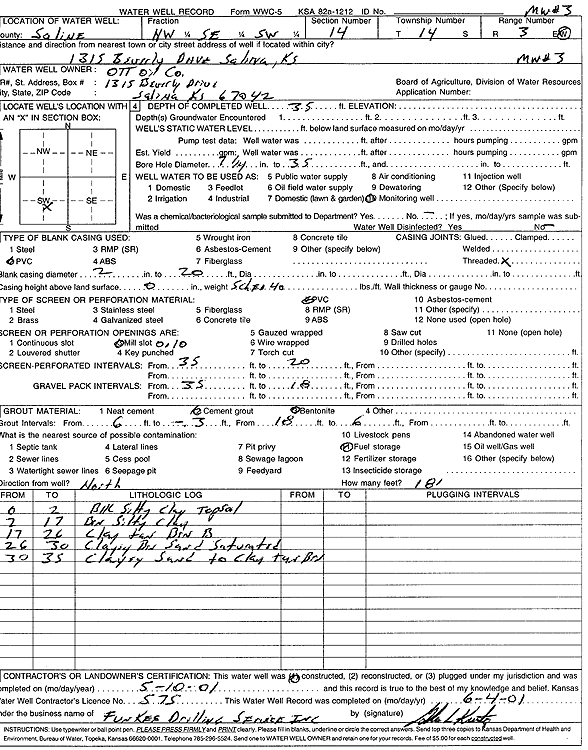 WATER WELL RECORD Form WWC-5 KSA 82a-1212 ID No. MW#3
LOCATION OF WATER WELL: Fraction Section Number Township Number Range Number
ounty: Saline NW ¼ SE ¼ SW ¼ 14 T 14 S R 3 E W
istance and direction from nearest town or city street address of well if located within city?
1315 Beverly Drive Salina, KS MW#3
WATER WELL OWNER: OTT Oil Co.
R#, St. Address, Box # : 1315 Beverly Drive Board of Agriculture, Division of Water Resources
ity, State, ZIP Code : Salina KS 67042 Application Number:
LOCATE WELL'S LOCATION WITH 4 DEPTH OF COMPLETED WELL 35 ft. ELEVATION:
AN "X" IN SECTION BOX: Depth(s) Groundwater Encountered 1 ft. 2. ft. 3. ft.
N WELL'S STATIC WATER LEVEL ft. below land surface measured on mo/day/yr
Pump test data: Well water was ft. after hours pumping gpm
NW NE Est. Yield gpm; Well water was ft. after hours pumping gpm
Bore Hole Diameter in. to 35 ft., and in. to ft.
W E WELL WATER TO BE USED AS: 5 Public water supply 8 Air conditioning 11 Injection well
1 Domestic 3 Feedlot 6 Oil field water supply 9 Dewatering 12 Other (Specify below)
SW SE 2 Irrigation 4 Industrial 7 Domestic (lawn & garden) 10 Monitoring well
X
Was a chemical/bacteriological sample submitted to Department? Yes No ; If yes, mo/day/yrs sample was sub-
S mitted Water Well Disinfected? Yes No
TYPE OF BLANK CASING USED: 5 Wrought iron 8 Concrete tile CASING JOINTS: Glued Clamped
1 Steel 3 RMP (SR) 6 Asbestos-Cement 9 Other (specify below) Welded
2 PVC 4 ABS 7 Fiberglass Threaded X
Blank casing diameter 2 in. to 20 ft., Dia in. to ft., Dia in. to ft.
Casing height above land surface 0 in., weight Sched 40 lbs./ft. Wall thickness or gauge No.
TYPE OF SCREEN OR PERFORATION MATERIAL: 7 PVC 10 Asbestos-cement
1 Steel 3 Stainless steel 5 Fiberglass 8 RMP (SR) 11 Other (specify)
2 Brass 4 Galvanized steel 6 Concrete tile 9 ABS 12 None used (open hole)
SCREEN OR PERFORATION OPENINGS ARE: 5 Gauzed wrapped 8 Saw cut 11 None (open hole)
1 Continuous slot 3 Mill slot 0.010 6 Wire wrapped 9 Drilled holes
2 Louvered shutter 4 Key punched 7 Torch cut 10 Other (specify) ft.
SCREEN-PERFORATED INTERVALS: From 35 ft. to 20 ft., From ft. to ft.
From ft. to ft., From ft. to ft.
GRAVEL PACK INTERVALS: From 35 ft. to 18 ft., From ft. to ft.
From ft. to ft., From ft. to ft.
GROUT MATERIAL: 1 Neat cement 2 Cement grout 3 Bentonite 4 Other
Grout Intervals: From 6 ft. to 3 ft., From 18 ft. to 6 ft., From ft. to ft.
What is the nearest source of possible contamination: 10 Livestock pens 14 Abandoned water well
1 Septic tank 4 Lateral lines 7 Pit privy 11 Fuel storage 15 Oil well/Gas well
2 Sewer lines 5 Cess pool 8 Sewage lagoon 12 Fertilizer storage 16 Other (specify below)
3 Watertight sewer lines 6 Seepage pit 9 Feedyard 13 Insecticide storage
Direction from well? North How many feet? 181
FROM TO LITHOLOGIC LOG FROM TO PLUGGING INTERVALS
0 2 Blk Silty Clay Topsoil
2 17 Brn Silty Clay
17 26 Clay tan Brn B
26 30 Clayey Brn Sand Saturated
30 35 Clayey Sand to Clay tan Brn
CONTRACTOR'S OR LANDOWNER'S CERTIFICATION: This water well was (1) constructed, (2) reconstructed, or (3) plugged under my jurisdiction and was
ompleted on (mo/day/year) 5-10-01 and this record is true to the best of my knowledge and belief. Kansas
Water Well Contractor's Licence No. 575 This Water Well Record was completed on (mo/day/yr) 6-4-01
nder the business name of Funkes Drilling Service Inc by (signature)
INSTRUCTIONS: Use typewriter or ball point pen. PLEASE PRESS FIRMLY and PRINT clearly. Please fill in blanks, underline or circle the correct answers. Send top three copies to Kansas Department of Health and
Environment, Bureau of Water, Topeka, Kansas 66620-0001. Telephone 785-296-5524. Send one to WATER WELL OWNER and retain one for your records. Fee of $5.00 for each constructed well.